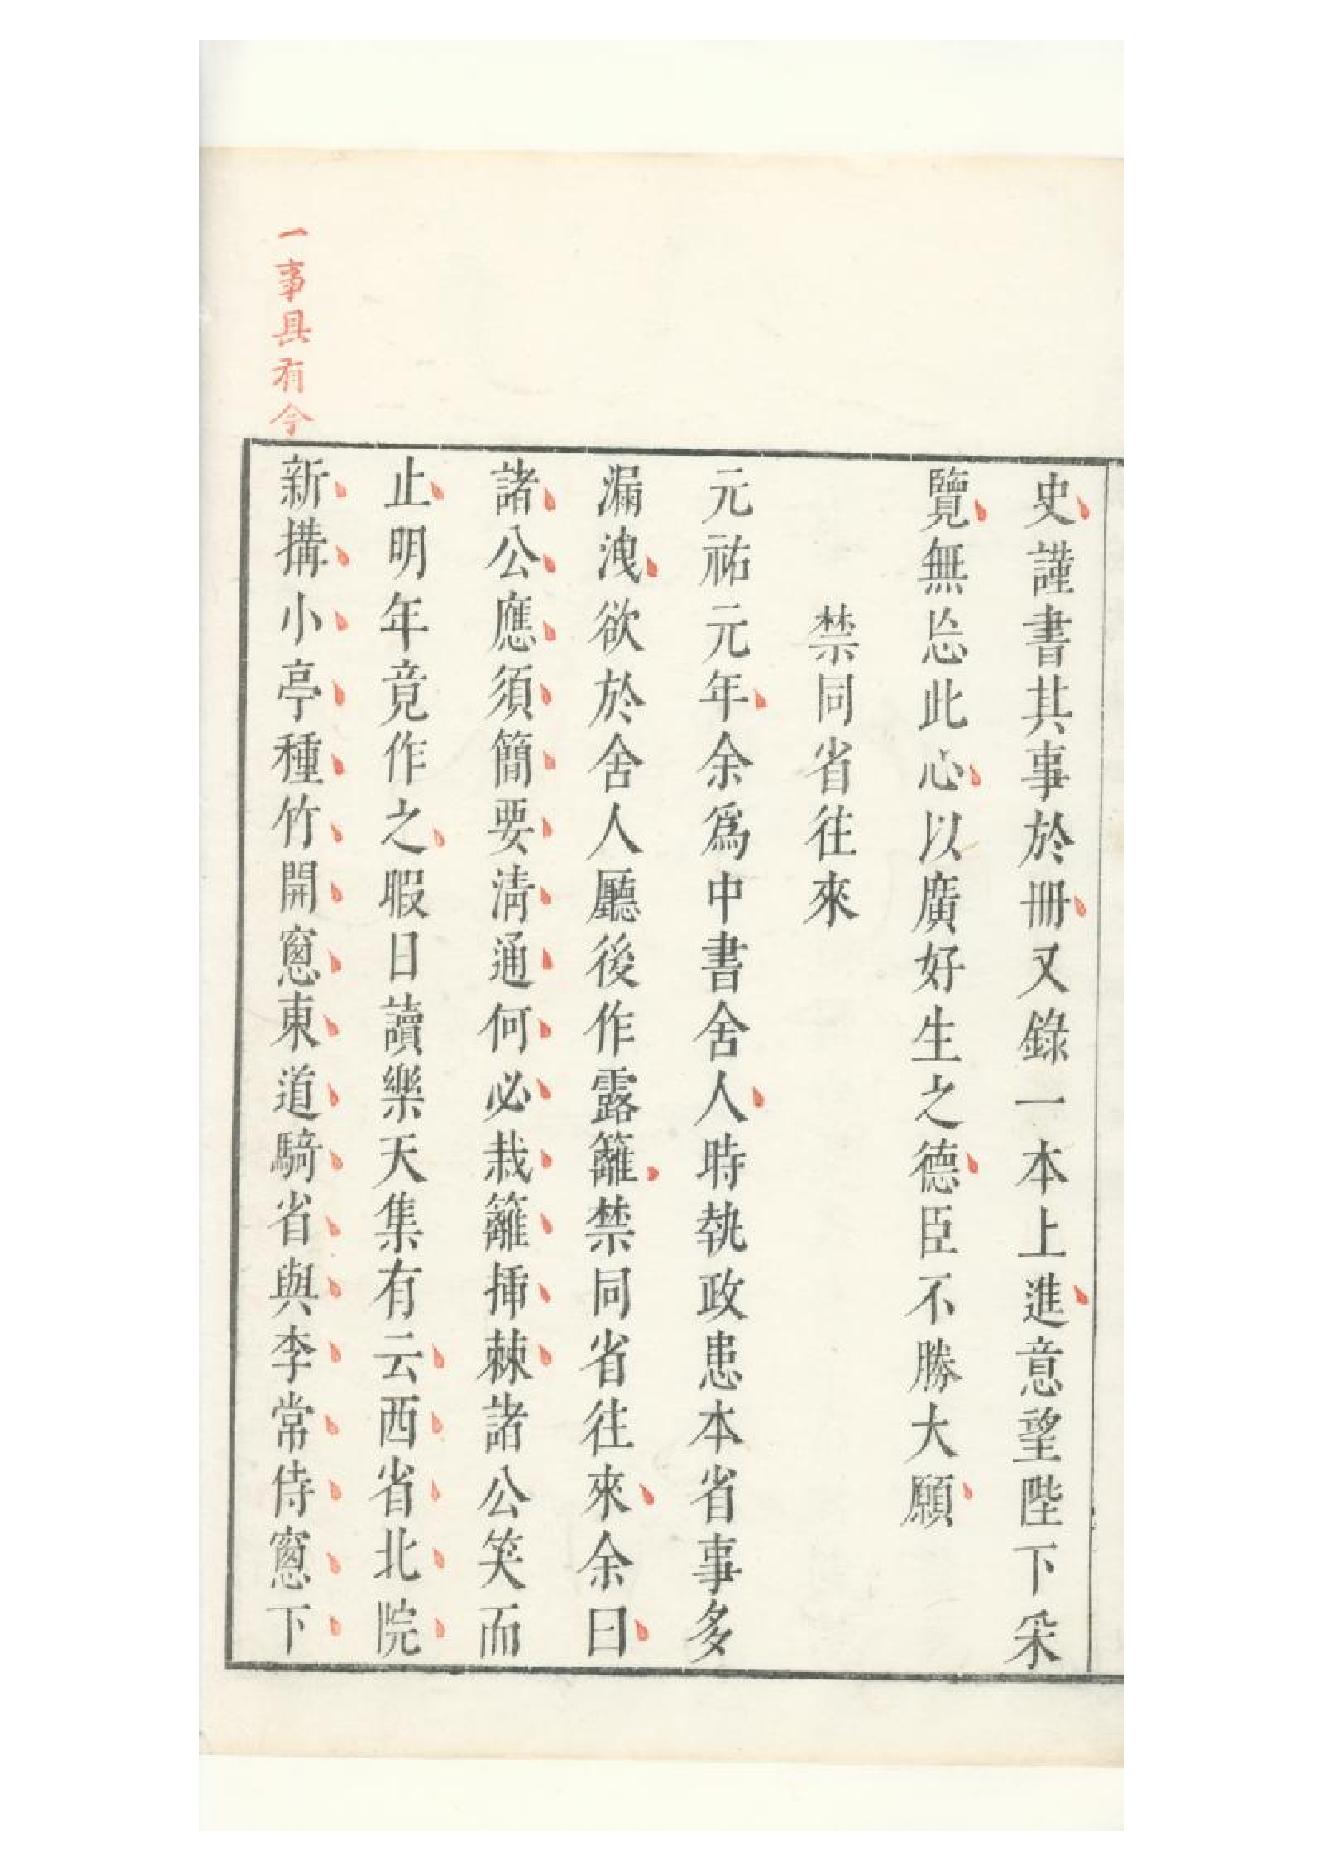 史謹書其事於冊又錄一本上進意望陛下采
覽無忘此心以廣好生之德臣不勝大願
禁同省往來
元祐元年余爲中書舍人時執政患本省事多
漏洩欲於舍人廳後作露籬禁同省往來余曰
諸公應須簡要淸通何必栽籬揷棘諸公笑而
止明年竟作之暇日讀樂天集有云西省北院
新搆小亭種竹開窻東道騎省與李常侍窻下
一事具有今